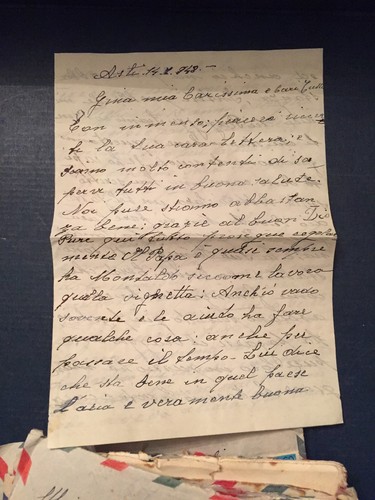 Asti. 14.X.948.—
Gina mia Carissima e Cari tutti
Con immenso piacere
ti la tua cara lettera; e
siamo molto contenti di sa
pervi tutti in buona salute.
Noi pure stiamo abbastan
za bene; grazie al buon Dio
Pure qui tutto
mente Il Papà è quasi sempre
ha Montaldo siccome lavora
quella vignetta: Anch'io vado
sovente e le aiudo ha fare
qualche cosa: anche per
passare il tempo. Lui dice
che sta bene in quel paese
l'aria è veramente buona